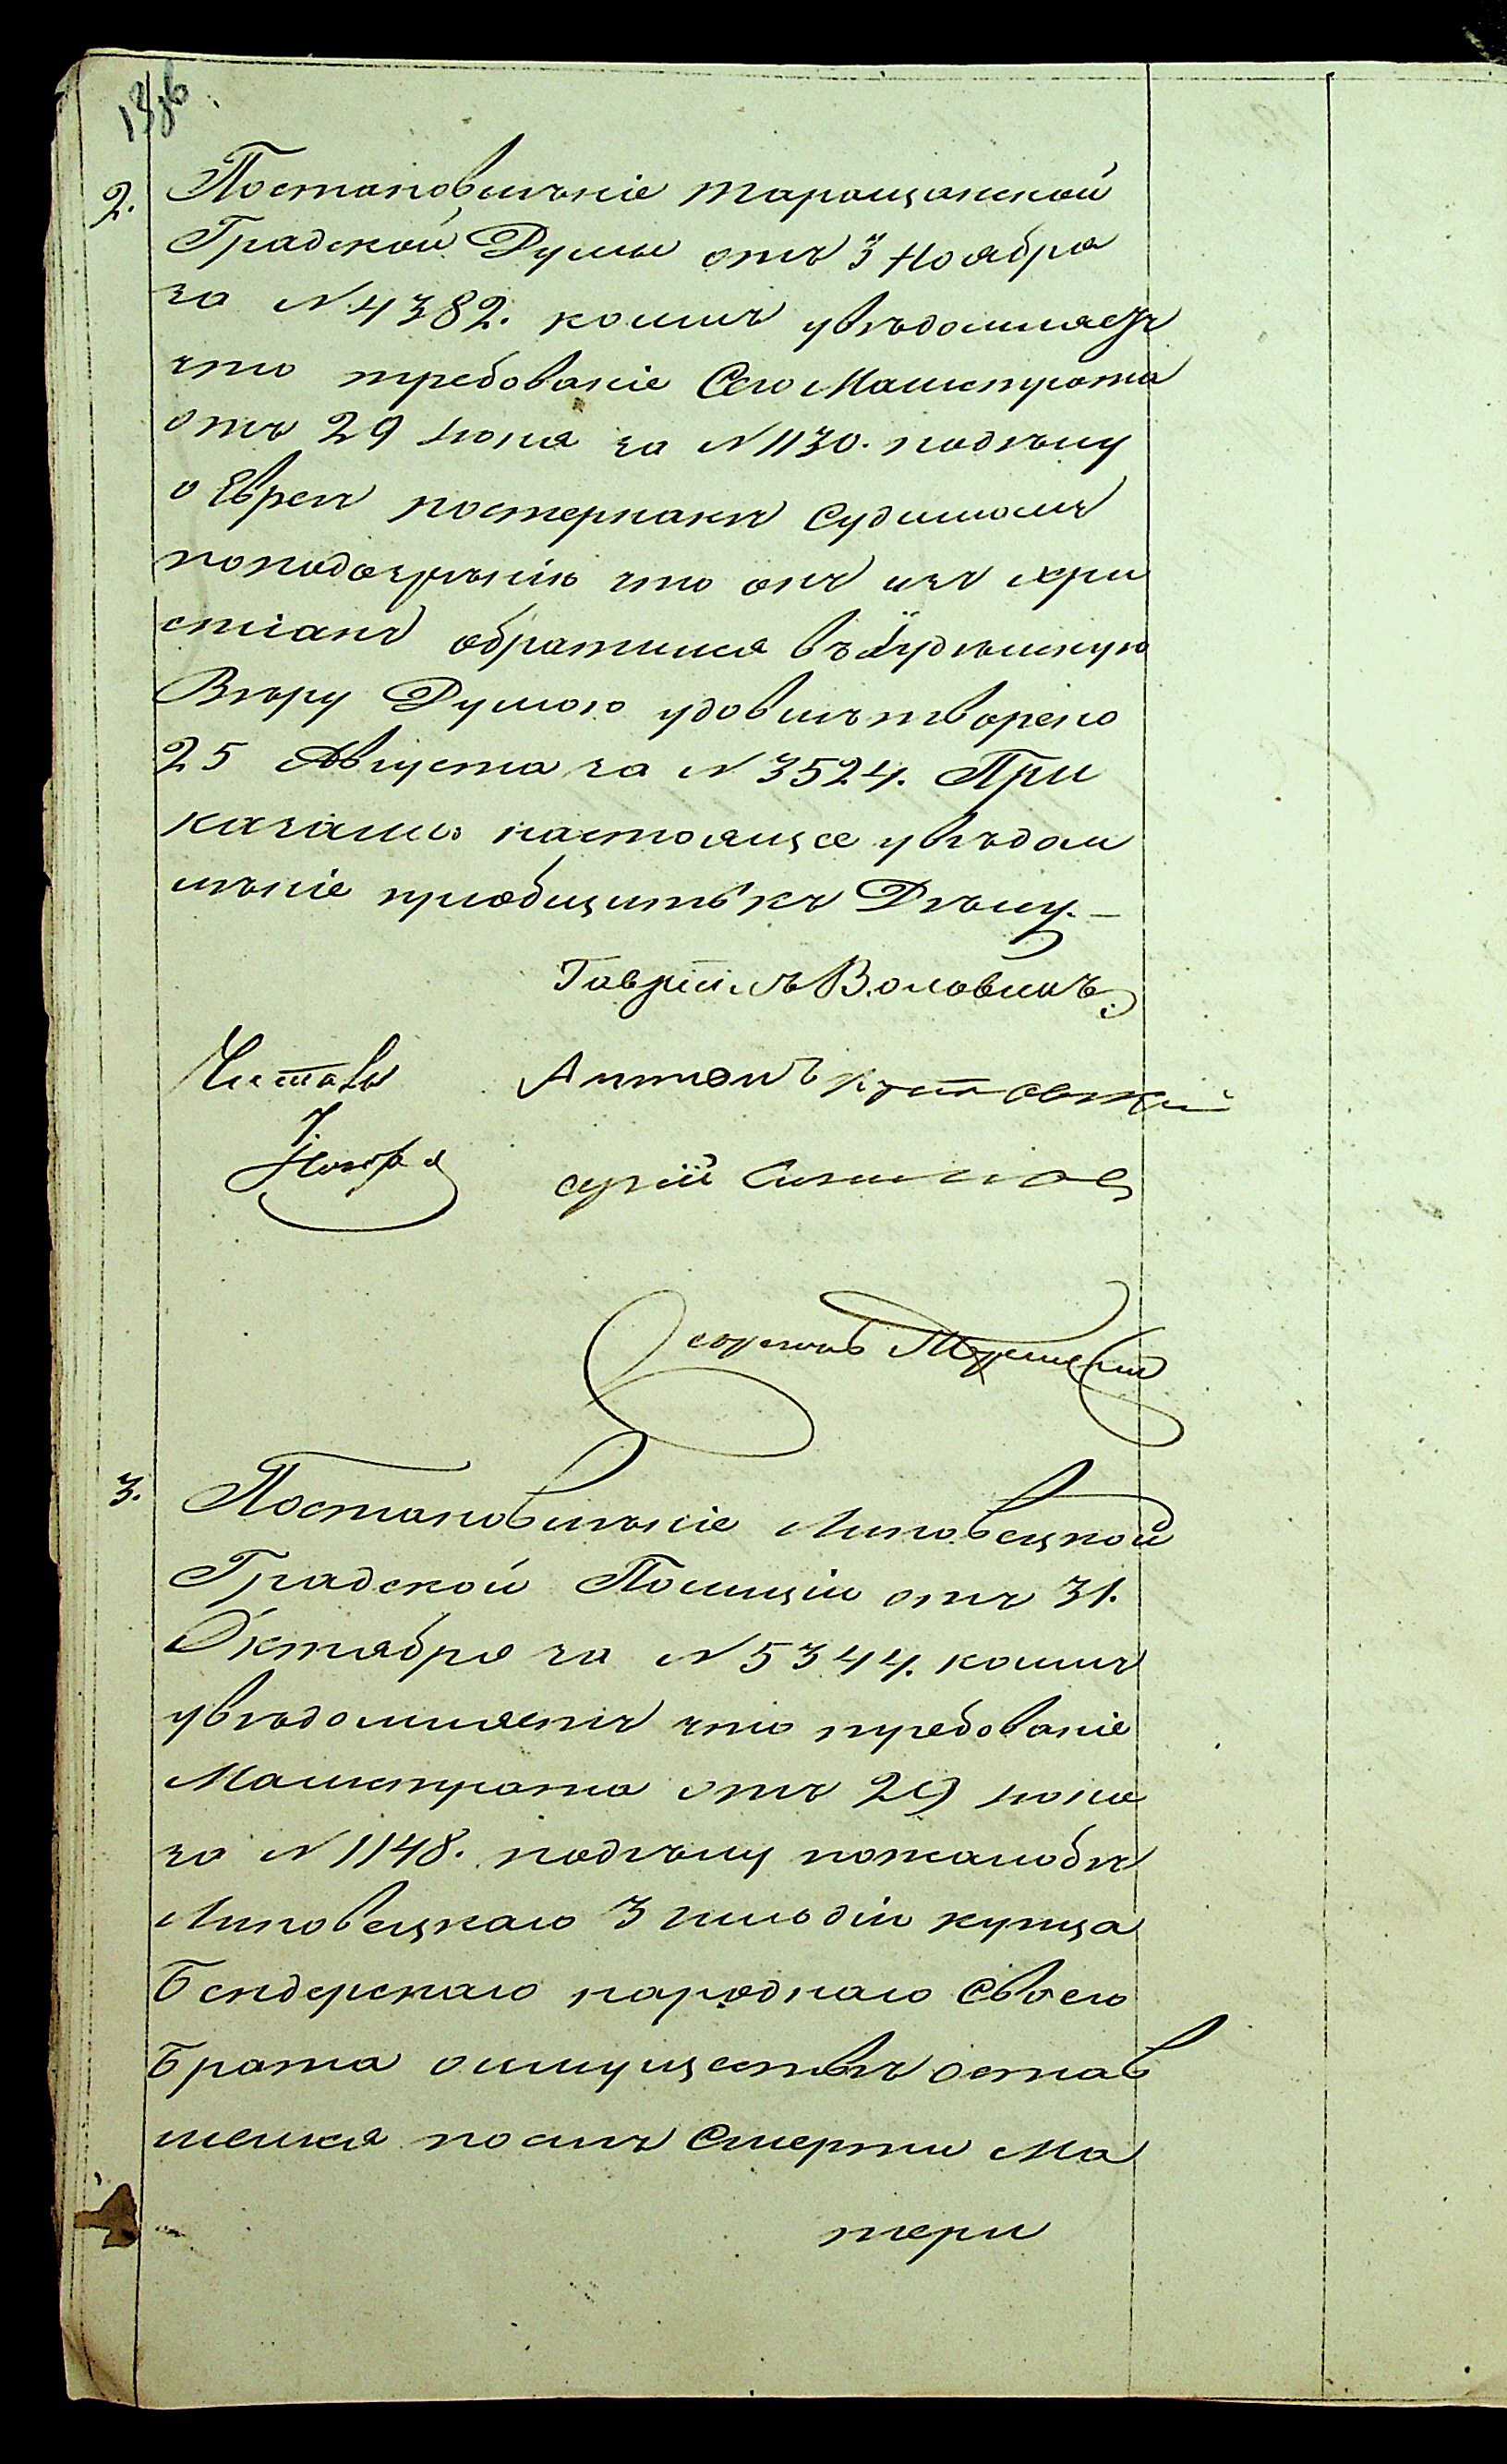 2. Постановленіе таращанской
Градской Думы отъ 3 Ноября
за N 4382. коимъ увѣдомляетъ
что требованіе Сего Магистрата
отъ 29 Іюня за N 1130. подѣлу
о Евреѣ постернакѣ Судимомъ
поподозрѣнію что онъ изъ хри
стіанъ обратился въ Іудѣйскую
Вѣру Думою удовлѣтворено
25 Августа за N 3524. При
казали настоящее увѣдом
лѣніе приобщить къ Дѣлу. –
Гавріилъ Воловикъ
Читалъ Антонъ
7. Ноября
3. Постановлѣніе Липовецкой
Градской Полиціи отъ 31.
Октября за N 5344. коимъ
увѣдомляетъ что требованіе
Магистрата отъ 29 Іюня
за N 1148. подѣлу пожалобѣ
Липовецкаго 3 гильдіи купца
Бендерскаго народнаго Своего
Брата оимуществѣ остав
шемся послѣ Смерти Ма
тери